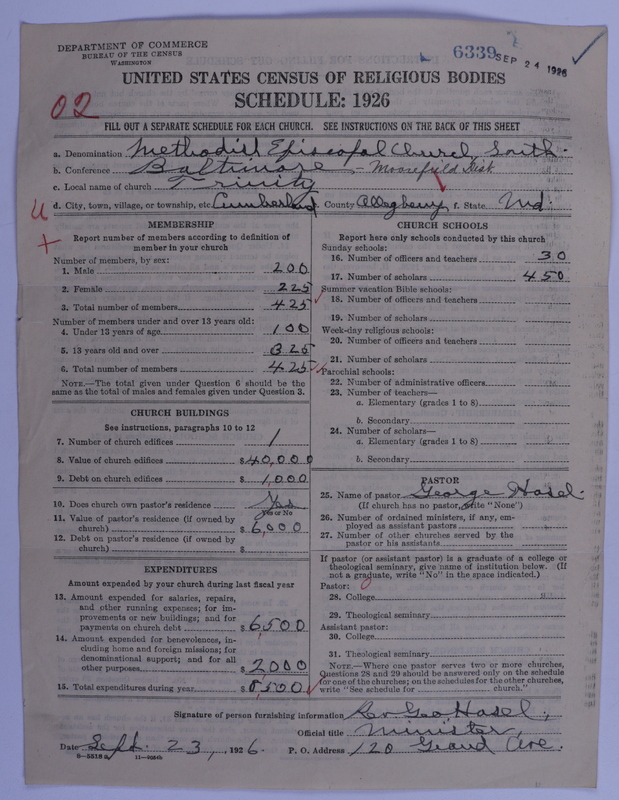 DEPARTMENT OF COMMERCE
BUREAU OF THE CENSUS
WASHINGTON
6339
SEP 24 1926
UNITED STATES CENSUS OF RELIGIOUS BODIES
SCHEDULE: 1926
02
FILL OUT A SEPARATE SCHEDULE FOR EACH CHURCH. SEE INSTRUCTIONS ON THE BACK OF THIS SHEET
a. Denomination Methodist Episcopal Church, South.
b. Conference Baltimore - Moorefield Dist
c. Local name of church Trinity
d. City, town, village, or township, etc. Cumberland County Allegheny f. State Md.
MEMBERSHIP
Report number of members according to definition of
member in your church
Number of members, by sex:
1. Male 200
2. Female 225
3. Total number of members 425
Number of members under and over 13 years old:
4. Under 13 years of age 100
5. 13 years old and over 325
6. Total number of members 425
NOTE.—The total given under Question 6 should be the
same as the total of males and females given under Question 3.
CHURCH BUILDINGS
See instructions, paragraphs 10 to 12
7. Number of church edifices 1
8. Value of church edifices $40,000
9. Debt on church edifices $1,000
10. Does church own pastor's residence Yes
Yes or No
11. Value of pastor's residence (if owned by
church) $6,000
12. Debt on pastor's residence (if owned by
church) $
EXPENDITURES
Amount expended by your church during last fiscal year
13. Amount expended for salaries, repairs,
and other running expenses; for im-
provements or new buildings; and for
payments on church debt $6,500
14. Amount expended for benevolences, in-
cluding home and foreign missions; for
denominational support; and for all
other purposes $2000
15. Total expenditures during year $8,500
CHURCH SCHOOLS
Report here only schools conducted by this church
Sunday schools:
16. Number of officers and teachers 30
17. Number of scholars 450
Summer vacation Bible schools:
18. Number of officers and teachers
19. Number of scholars
Week-day religious schools:
20. Number of officers and teachers
21. Number of scholars
Parochial schools:
22. Number of administrative officers
23. Number of teachers—
a. Elementary (grades 1 to 8)
b. Secondary
24. Number of scholars—
a. Elementary (grades 1 to 8)
b. Secondary
PASTOR
25. Name of pastor George Hasel.
(If church has no pastor, write "None")
26. Number of ordained ministers, if any, em-
ployed as assistant pastors
27. Number of other churches served by the
pastor or his assistants
If pastor (or assistant pastor) is a graduate of a college or
theological seminary, give name of institution below. (If
not a graduate, write "No" in the space indicated.)
Pastor: 0
28. College
29. Theological seminary
Assistant pastor:
30. College
31. Theological seminary
NOTE.—Where one pastor serves two or more churches,
Questions 28 and 29 should be answered only on the schedule
for one of the churches; on the schedules for the other churches,
write "See schedule for church."
Signature of person furnishing information Rev Geo, Hasel,
Official title Minister,
Date Sept. 23, 1926. P. O. Address 120 Grand Ave.